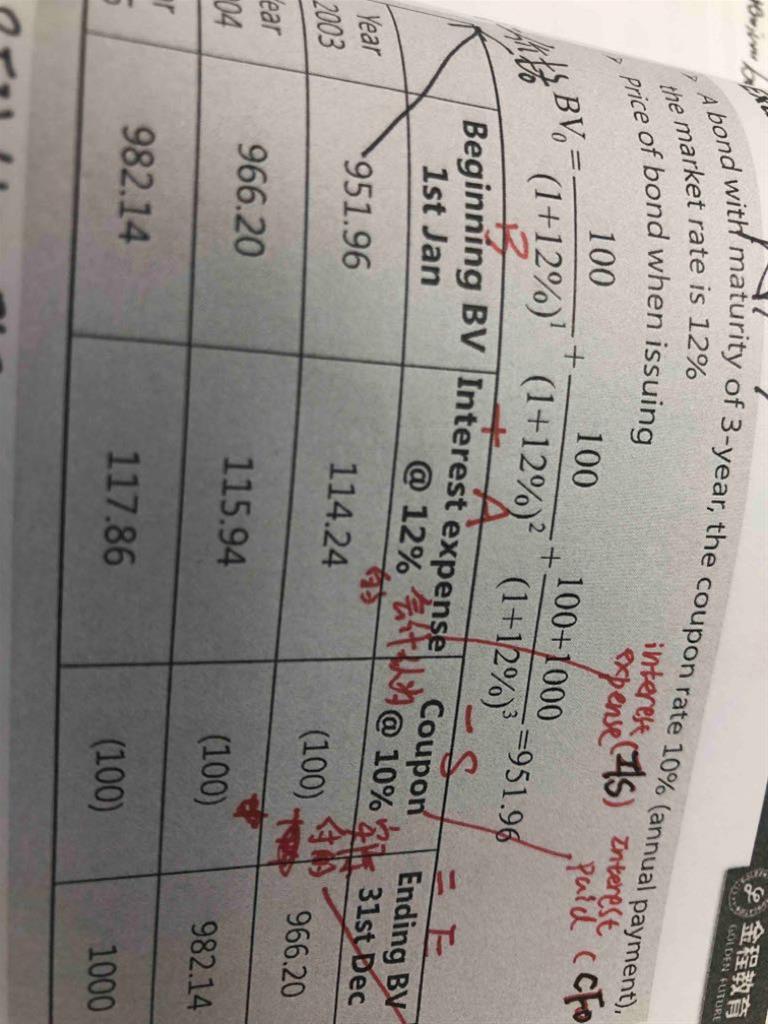 金程教育
GOLDEN FUTURE
A bond with maturity of 3-year, the coupon rate 10% (annual payment),
the market rate is 12%
Price of bond when issuing
interest
expense (I/S)
Interest
paid (CFO
BV₀ = 100/(1+12%)¹ + 100/(1+12%)² + 100+1000/(1+12%)³ =951.96
B + A - S = E
Beginning BV 1st Jan Interest expense @ 12% Coupon @ 10% Ending BV 31st Dec
会计认为
的
实际
付的
Year 2003 951.96 114.24 (100) 966.20
04 966.20 115.94 (100) 982.14
982.14 117.86 (100) 1000